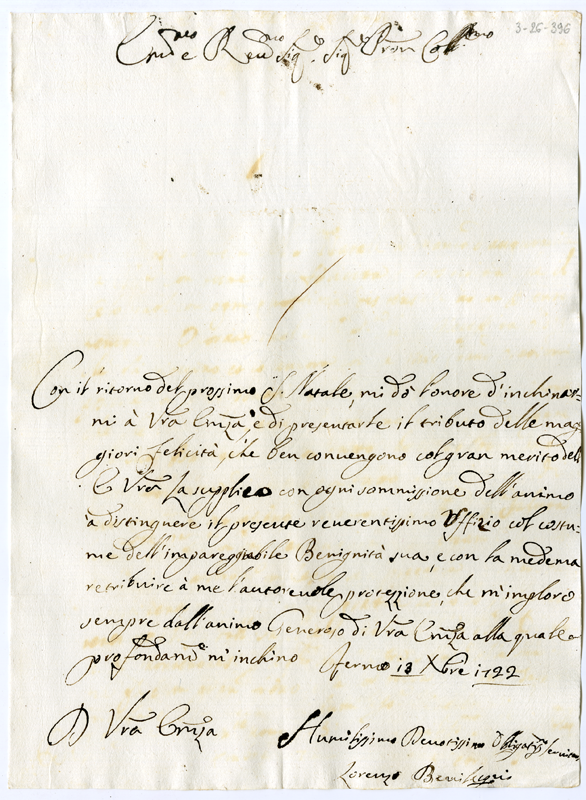 3-26-396
Em.mo e Rev.mo Sig.r Sig.r Pron Col.mo
Con il ritorno del prossimo S. Natale, mi dò l'onore d'inchinar=
mi à Vra Emza, e di presentarle il tributo delle mag=
giori felicità, che ben convengono col gran merito dell
E Vra. La supplico con ogni sommissione dell'animo
à distinguere il presente reverentissimo Uffizio col costu=
me dell'impareggiabile Benignità sua, e con la medema
retribuire à me l'autorevole protezzione, che m'imploro
sempre dall'animo Generoso di Vra Emza alla quale
profondam.e m'inchino Fermo 13 Xbre 1722
D Vra Emza
Humilissimo Devotissimo Obligatis.o Servitore
Lorenzo